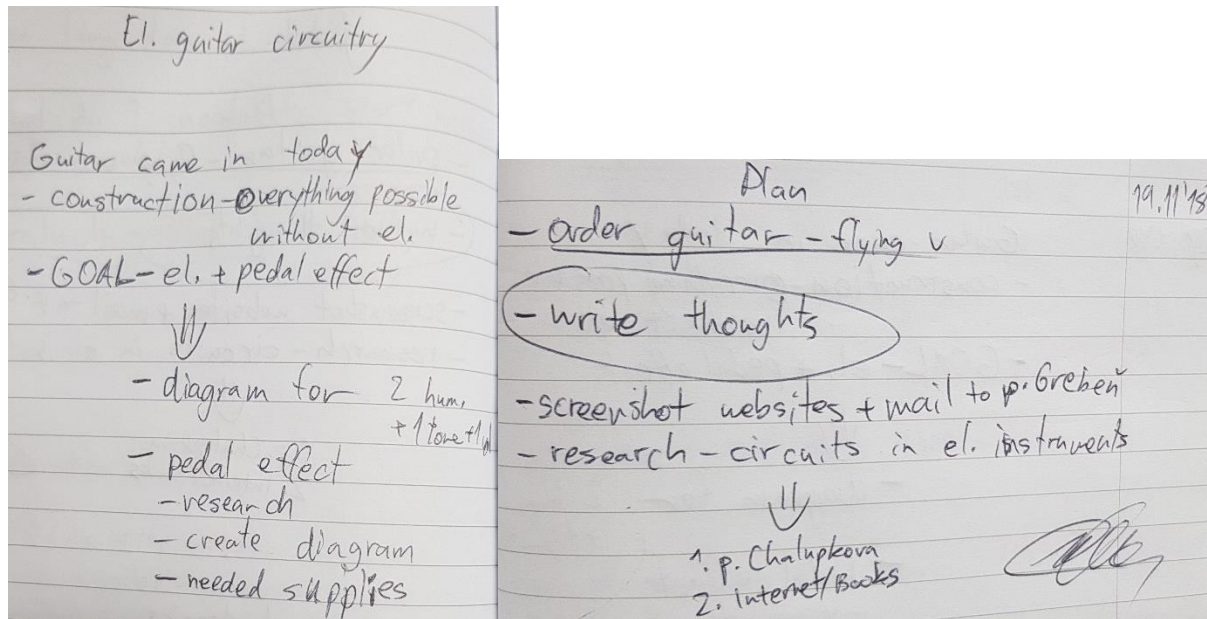 El. guitar circuitry
Guitar came in today
- construction - everything possible
without el.
- GOAL - el. + pedal effect
- diagram for 2 hum.
+ 1 tone + 1
- pedal effect
- research
- create diagram
- needed supplies
Plan
19.11'18
- order guitar - flying v
- write thoughts
- screenshot websites + mail to p. Grebeň
- research - circuits in el. instruments
1. p. Chalupkova
2. Internet/Books